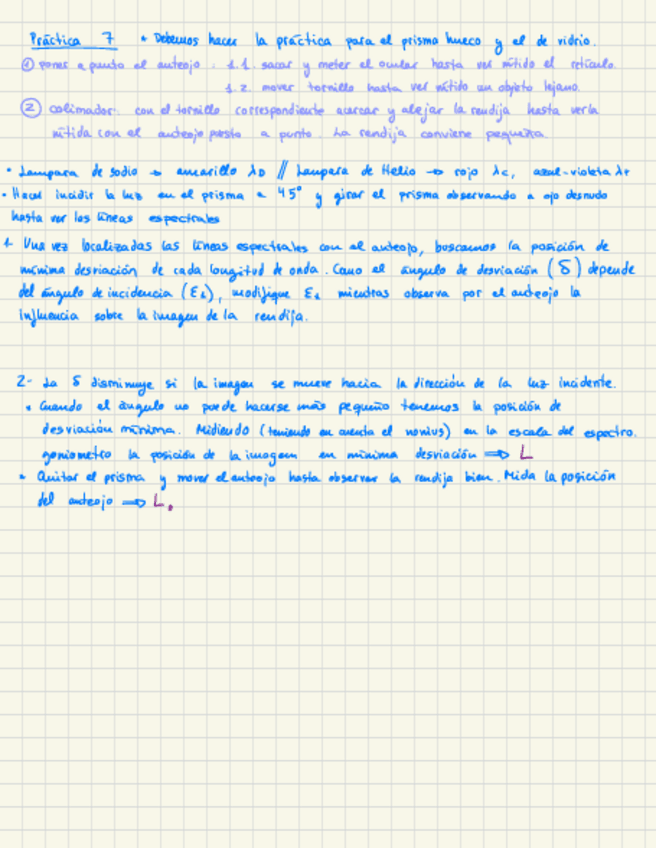 Práctica 7 * Debemos hacer la práctica para el prisma hueco y el de vidrio.
① poner a punto el anteojo : 1.1. sacar y meter el ocular hasta ver nítido el retículo.
1.2. mover tornillo hasta ver nítido un objeto lejano.
② colimador: con el tornillo correspondiente acercar y alejar la rendija hasta verla
nítida con el anteojo puesto a punto. La rendija conviene pequeña.
• Lampara de sodio → amarillo λD // Lampara de Helio → rojo λc, azul-violeta λF
• Hacer incidir la luz en el prisma a 45° y girar el prisma observando a ojo desnudo
hasta ver las líneas espectrales
1- Una vez localizadas las líneas espectrales con el anteojo, buscamos la posición de
mínima desviación de cada longitud de onda. Como el ángulo de desviación (δ) depende
del ángulo de incidencia (ε₁), modifique ε₁ mientras observa por el anteojo la
influencia sobre la imagen de la rendija.
2- La δ disminuye si la imagen se mueve hacia la dirección de la luz incidente.
• Cuando el ángulo no puede hacerse más pequeño tenemos la posición de
desviación mínima. Midiendo (teniendo en cuenta el nonius) en la escala del espectro.
goniometro la posición de la imagen en mínima desviación ⇒ L
• Quitar el prisma y mover el anteojo hasta observar la rendija bien. Mida la posición
del anteojo ⇒ L₀